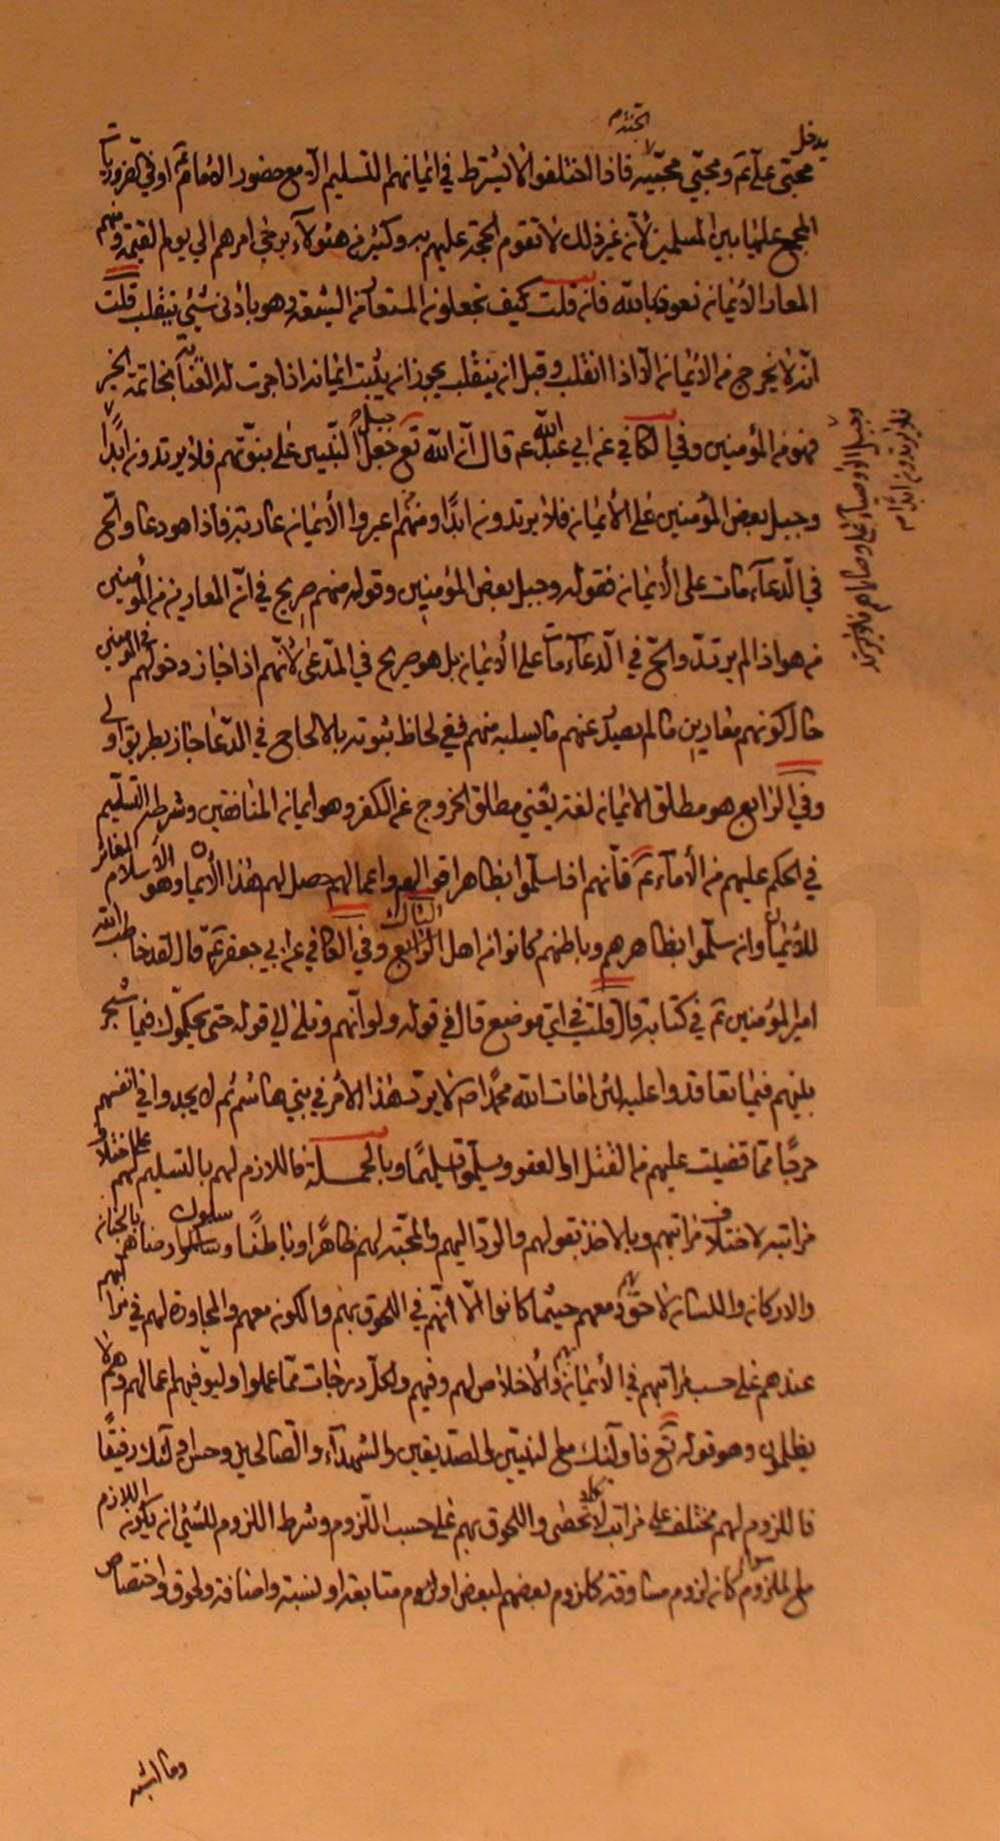 يدخل
الجنة م
محبتى علي عم ومحبي محبيه فاذا اختلفوا لا يشترط في ايمانهم التسليم الا مع حضور الامام عم او في الضروريات
المجمع عليها بين المسلمين لان غير ذلك لا تقوم الحجة عليهم به وكثير من هؤلاء يرجى امرهم الى يوم القيمة ومنهم
المعار الايمان نعوذ بالله فان قلت كيف تجعلون المستعار من الشيعة وهو بادنى شئ ينقلب قلت
انه لا يخرج من الايمان الا اذا انقلب وقبل ان ينقلب يجوز ان يثبت ايمانه اذا جرت له العناية بخاتمة الخير
فهو من المؤمنين وفي الكافي عن ابي عبد الله عم قال ان الله تع جبل النبيين على نبوتهم فلا يرتدون ابدًا
وجبل الاوصياء على وصاياهم فلا يرتدون ابدًا م
وجبل بعض المؤمنين على الايمان فلا يرتدون ابدًا ومنهم اعيروا الايمان عارية فاذا هو دعا والح
في الدعاء مات على الايمان فقوله وجبل بعض المؤمنين وقوله منهم صريح في ان المعارين من المؤمنين
من هو اذا لم يرتد والح في الدعاء مات على الايمان بل هو صريح في المدعى لانهم اذا جاز دخولهم في المؤمنين
حال كونهم معارين ما لم يصدر عنهم ما يسلبه منهم ففي لحاظ ثبوته بالالحاح في الدعا جاز بطريق اولى
وفي الرابع هو مطلق الايمان لغة يعني مطلق الخروج عن الكفر وهو ايمان المنافقين وشرطه التسليم
في الحكم عليهم من الامام عم فانهم اذا سلموا بظاهر اقوالهم واعمالهم حصل لهم هذا الايمان وهو الاسلام المغائر
للايمان وان سلموا بظاهرهم وباطنهم كانوا من اهل الثالث وفي الكافي عن ابي جعفر عم قال لقد خاطب الله
امير المؤمنين عم في كتابه قال قلت في اي موضع قال في قوله ولو انهم وتلى الى قوله حتى يحكموك فيما شجر
بينهم فيما تعاقدوا عليه لئن امات الله محمدًا ص لا يردّ هذا الامر في بني هاشم ثم لا يجدوا في انفسهم
حرجًا مما قضيت عليهم من القتل او العفو ويسلموا تسليمًا وبالجملة فاللازم لهم بالتسليم لهم على اختلاف
مراتبه لاختلاف مراتبهم وبالاخذ بقولهم والود اليهم والمحبة لهم ظاهرًا وباطنًا وسلوك رضاهم بالجنان
والاركان واللسان لاحق بهم معهم حيثما كانوا الا انهم في اللحوق بهم والكون معهم والمجاورة لهم في مراتبهم
عندهم على حسب مراتبهم في الايمان بهم والاخلاص لهم وفيهم ولكلّ درجات مما عملوا وليوفيهم اعمالهم وهم لا
يظلمون وهو قوله تع فاولئك مع النبيين والصديقين والشهداء والصالحين وحسن اولئك رفيقًا
فاللزوم لهم مختلف على مراتب لا تحصى واللحوق بهم على حسب اللزوم وشرط اللزوم للشئ ان يكون اللازم
مع الملزوم سواء كان لزوم مساوقة كلزوم بعضهم لبعض او لزوم متابعة او نسبة واضافة ولحوق واختصاص
وما اشبه